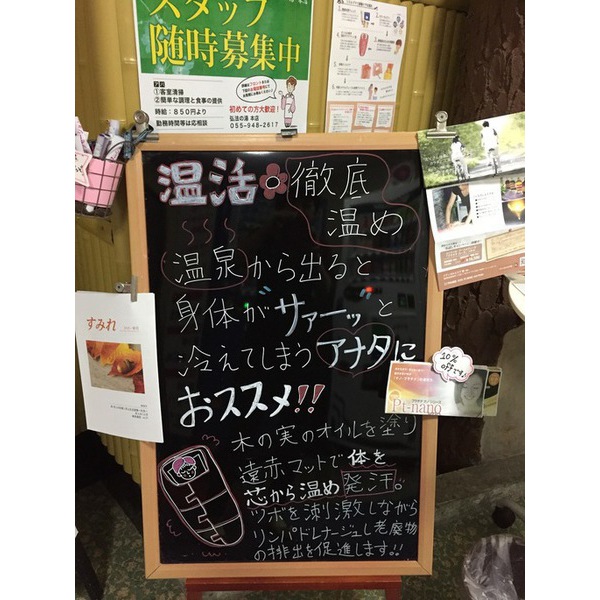 スタッフ
随時募集中
①客室清掃
②簡単な調理と食事の提供
時給：850円より
勤務時間等は応相談
初めての方大歓迎！
弘法の湯 本店
055-948-2617
温活。徹底
温め
温泉から出ると
身体が"サァーッ"と
冷えてしまうアナタに
おススメ!!
木の実のオイルを塗り
遠赤マットで体を
芯から温め発汗。
ツボを刺激しながら
リンパドレナージュし老廃物
の排出を促進します!!
すみれ
10%
OFFです!
Pt-nano